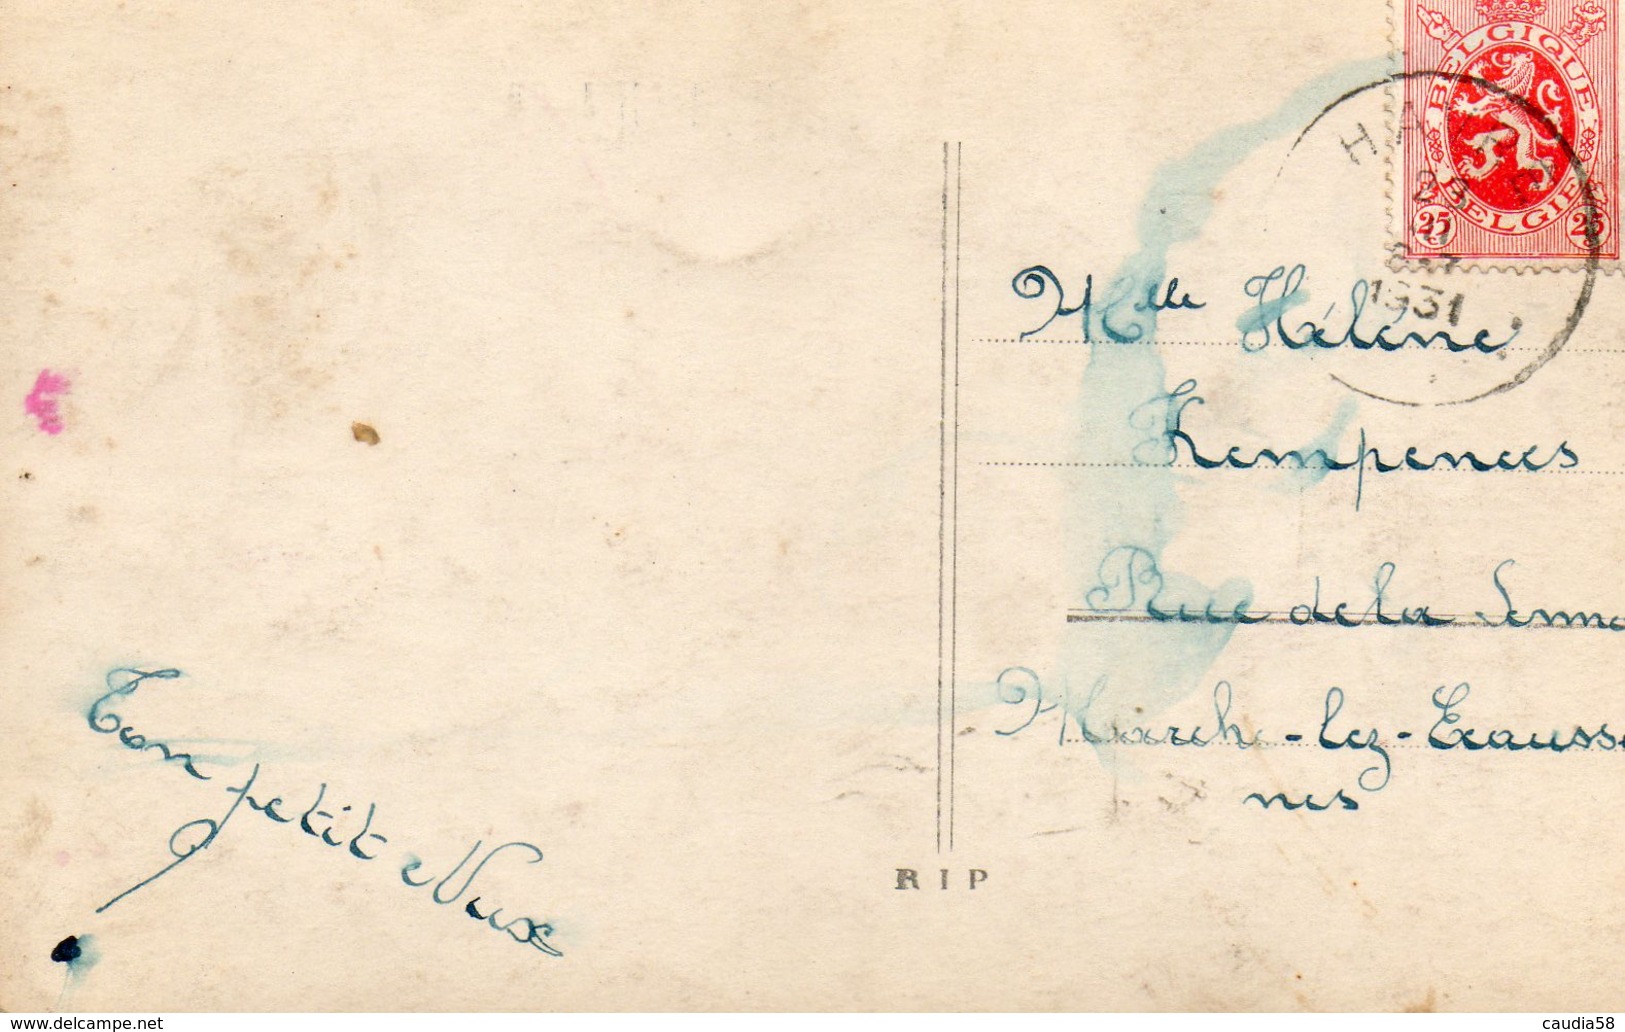 BELGIQUE
BELGIE
25 25
1931
Mlle Hélène
Kempenees
Rue de la Senne
Marche-lez-Écaussi
nes
Ton petit Nux
RIP
www.delcampe.net
caudia58